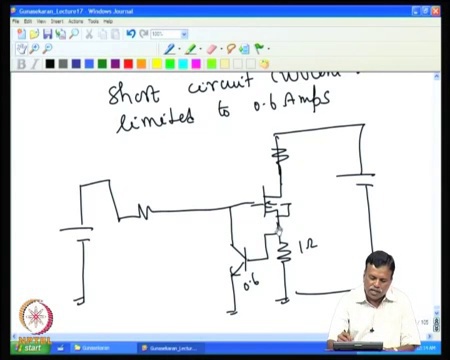 Gunasekaran_Lecture17 - Windows Journal
File Edit View Insert Actions Tools Help
100%
B I
short circuit
limited to 0.6 Amps
1Ω
0.6
NPTEL
start
Gunasekaran
Gunasekaran_Lectur...